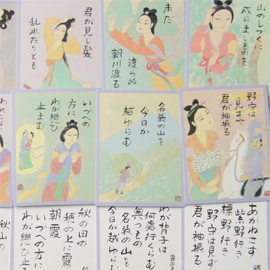 山のしづくに
成らましものを
未だ
渡らぬ
朝川渡る
君が見し髪
乱れたりとも
野守は
見ずや
君が袖振る
名張の山を
今日か
越ゆらむ
いづへの
方に
わが恋ひ
止まむ
あかねさす
紫野行き
標野行き
野守は見ずや
君が袖振る
わが背子は
何処行くらむ
奥つもの
名張の山を
今日か越ゆらむ
秋の田の
穂の上に霧
朝霞
いづへの方に
わが恋ひ止
秋山